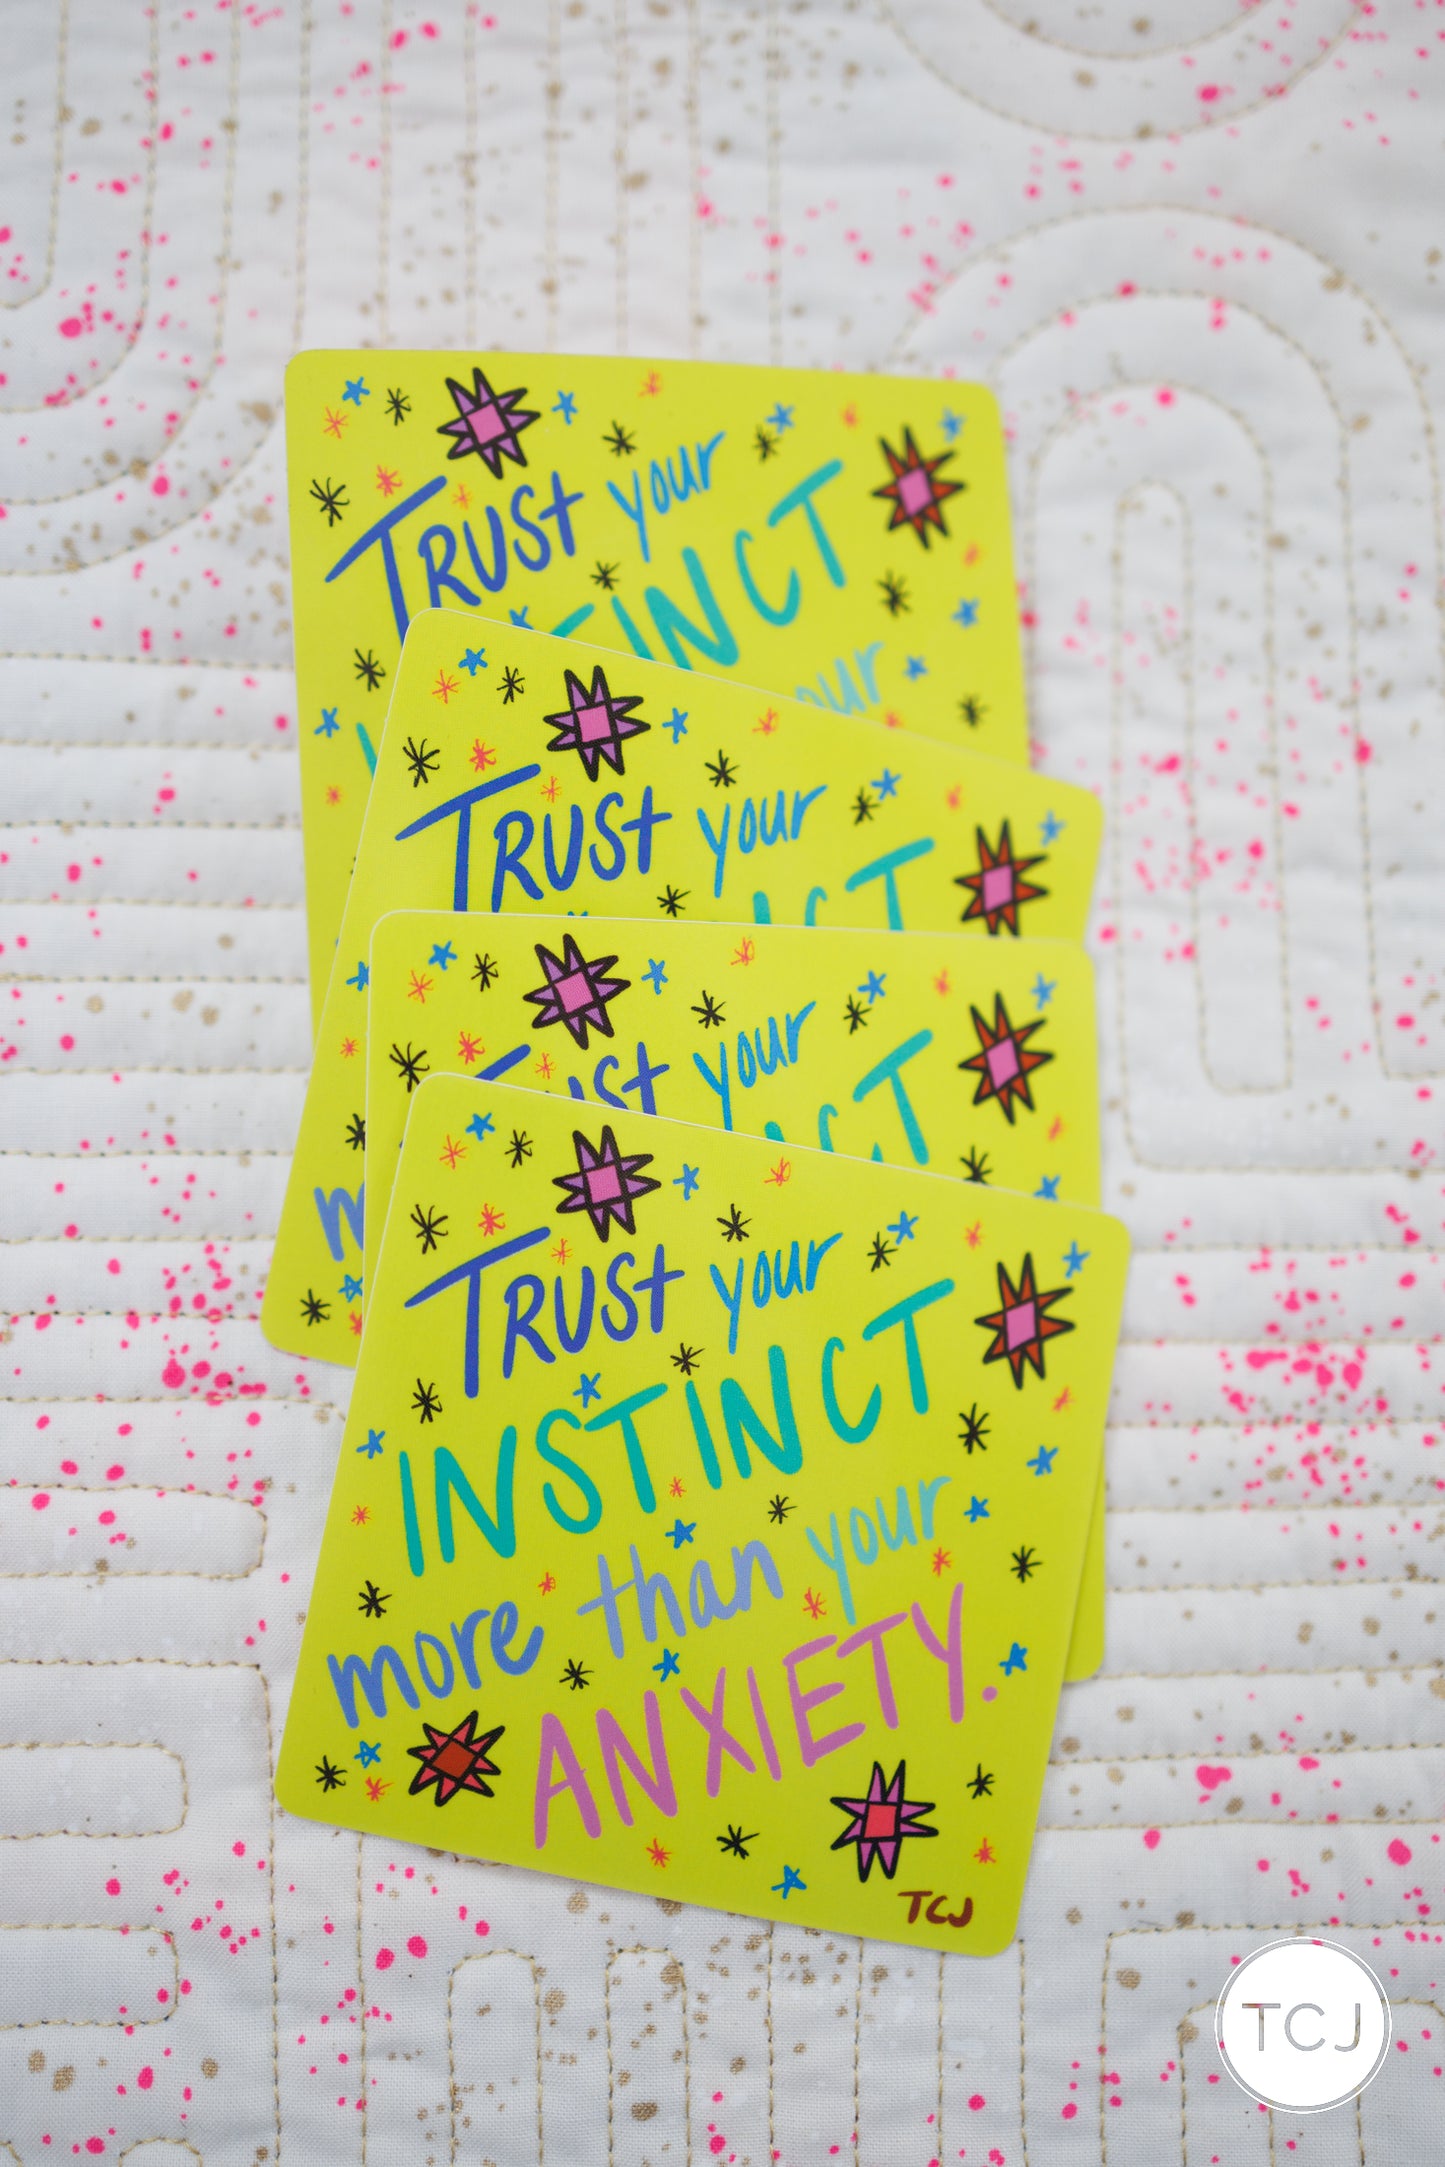 TRUST your
INSTINCT
your
TRUST your
INCT
m
TRUST your
INCT
TRUST your
INSTINCT
more than your
ANXIETY.
TCJ
TCJ